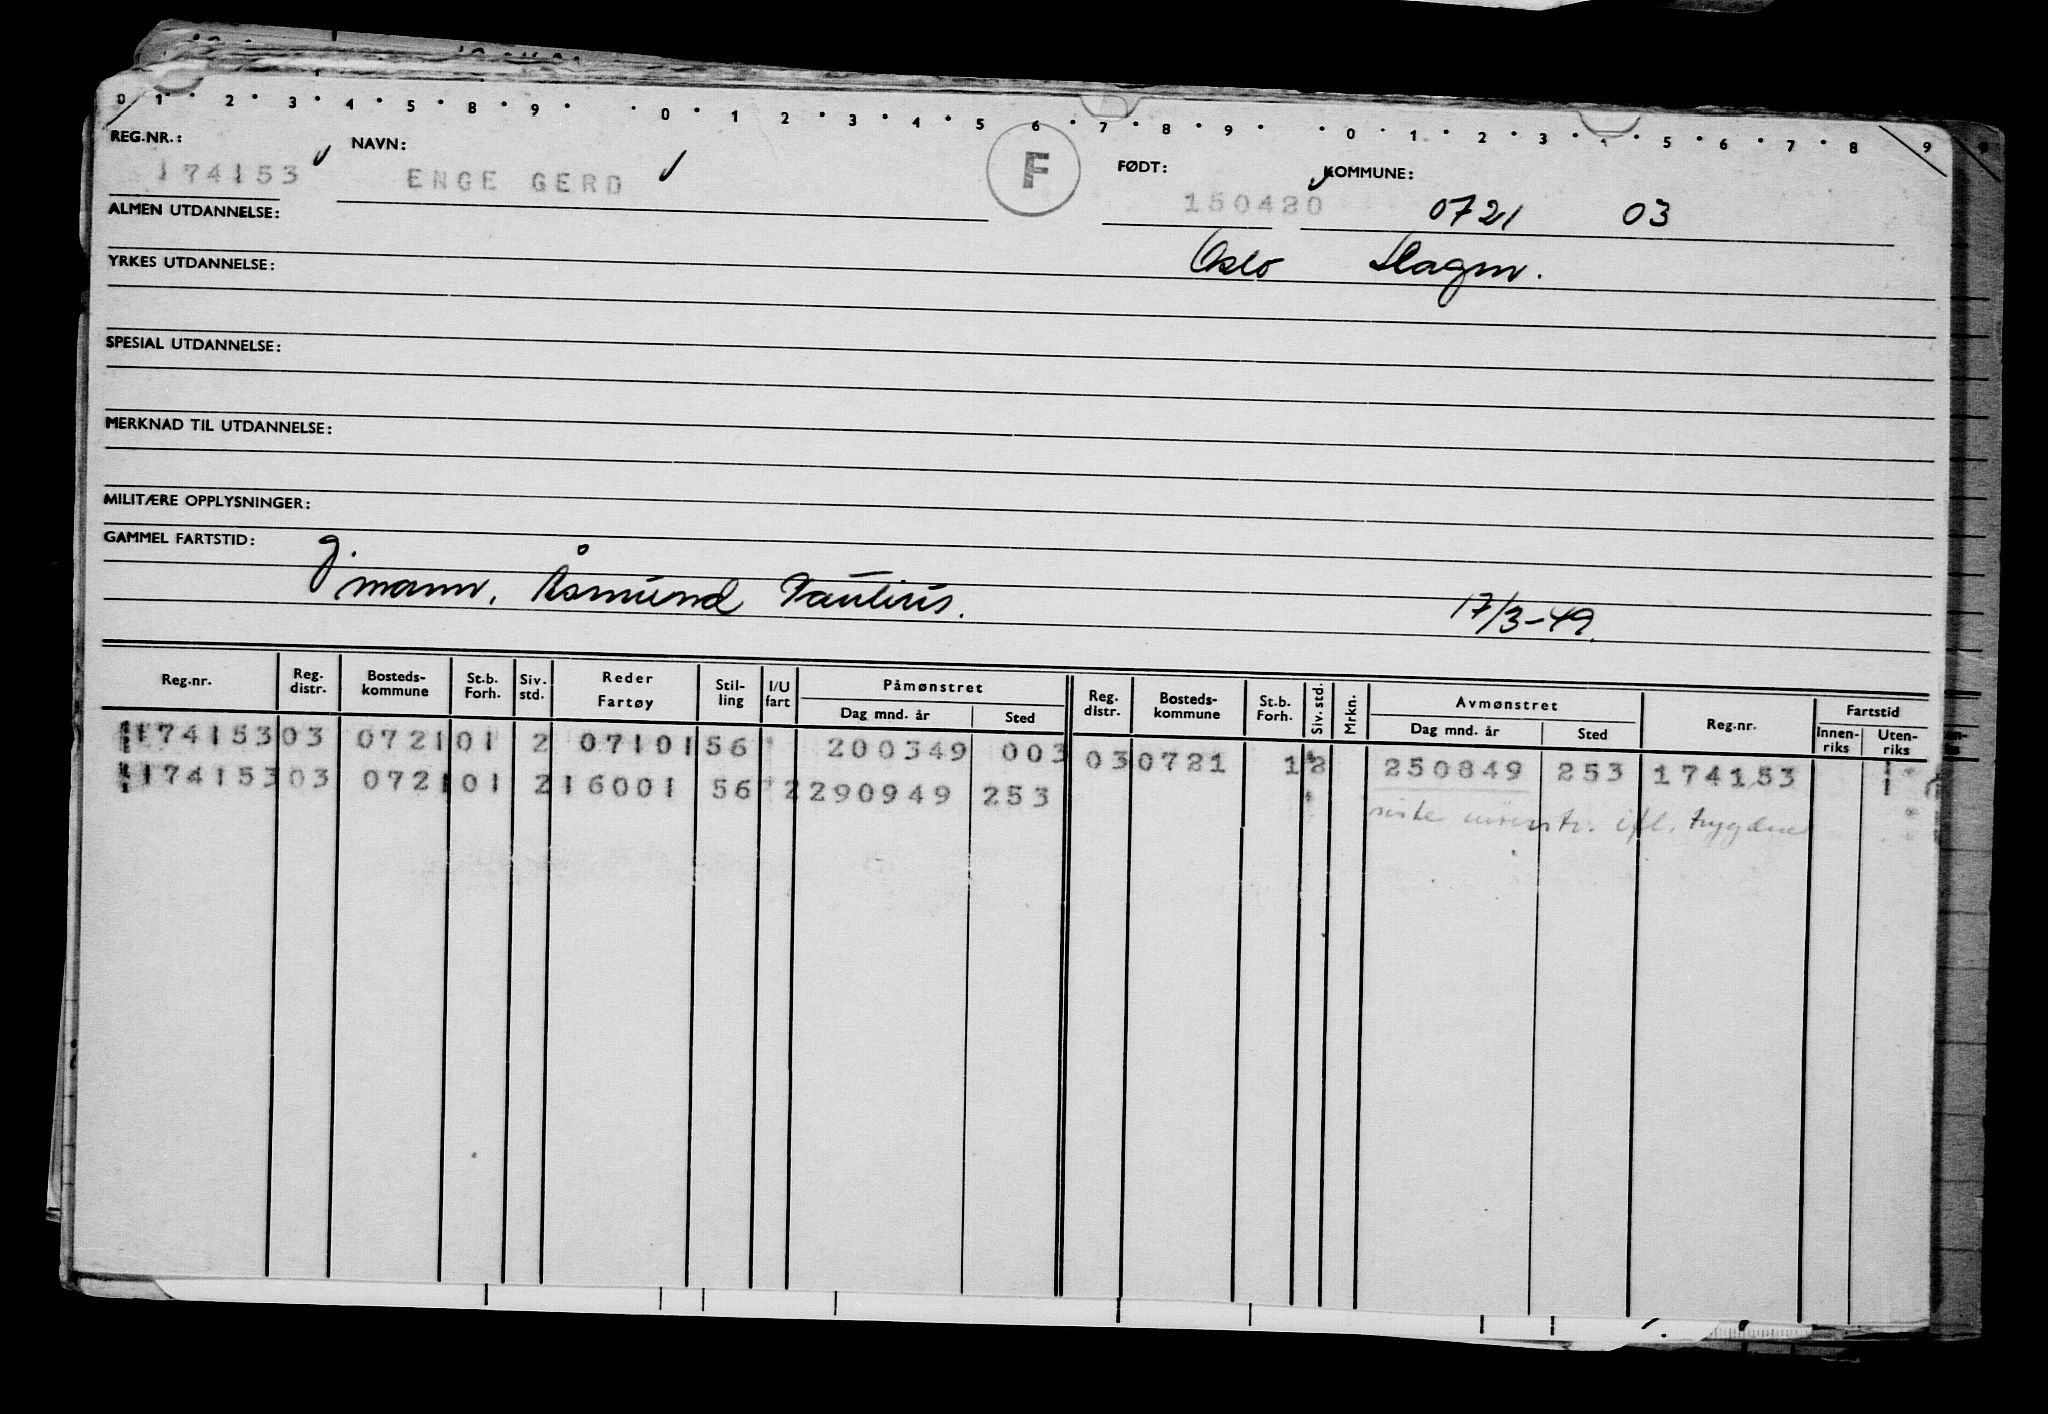 0 1 2 3 4 5 8 9 0 1 2 3 4 5 6 7 8 9 0 1 2 3 5 6 7 8 9
REG.NR.: NAVN: FØDT: KOMMUNE:
174153 ENGE GERD F 150420 0721 03
ALMEN UTDANNELSE:
Oslo Slagen.
YRKES UTDANNELSE:
SPESIAL UTDANNELSE:
MERKNAD TIL UTDANNELSE:
MILITÆRE OPPLYSNINGER:
GAMMEL FARTSTID: g.
mann. Åsmund Paulius. 17/3-49.
Reg.nr. Reg. distr. Bosteds-kommune St.b. Forh. Siv. std. Reder Fartøy Stil-ling I/U fart Påmønstret Dag mnd. år Sted Reg. distr. Bosteds-kommune St.b. Forh. Siv. std. Mrkn. Avmønstret Dag mnd. år Sted Reg.nr. Fartstid Innen-riks Uten-riks
174153 03 0721 01 2 07101 56 200349 003 03 0721 1 2 250849 253 174153
174153 03 0721 01 2 16001 56 2 290949 253
siste mønstr. ifl. trygden